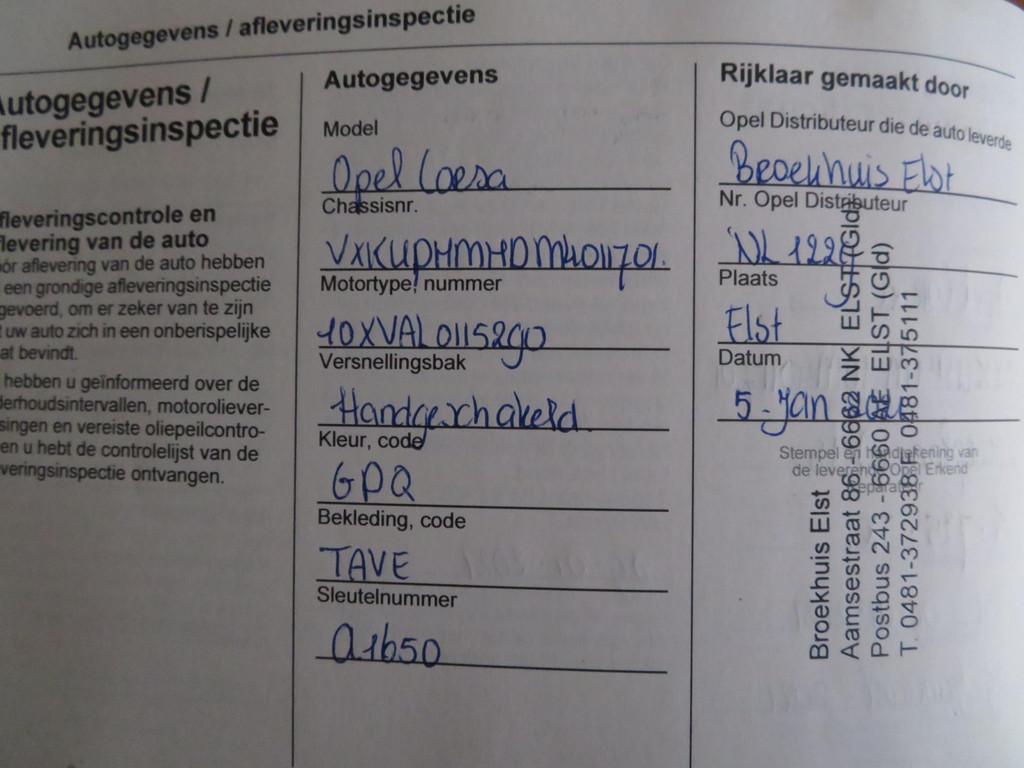 Autogegevens / afleveringsinspectie
Autogegevens /
fleveringsinspectie
fleveringscontrole en
levering van de auto
ór aflevering van de auto hebben
een grondige afleveringsinspectie
gevoerd, om er zeker van te zijn
t uw auto zich in een onberispelijke
at bevindt.
hebben u geïnformeerd over de
derhoudsintervallen, motoroliever-
singen en vereiste oliepeilcontro-
en u hebt de controlelijst van de
veringsinspectie ontvangen.
Autogegevens
Model
Opel Corsa
Chassisnr.
VXKUPHMHDM4011701.
Motortype, nummer
10XVAL0115290
Versnellingsbak
Handgeschakeld.
Kleur, code
GPQ
Bekleding, code
TAVE
Sleutelnummer
A1650
Rijklaar gemaakt door
Opel Distributeur die de auto leverde
Broekhuis Elst
Nr. Opel Distributeur
NL 122
Plaats
Elst
Datum
5-Jan
Stempel en handtekening van
de leverende Opel Erkend
Reparateur
Broekhuis Elst
Aamsestraat 86 - 6662 NK ELST (Gld)
Postbus 243 - 6660 AE ELST (Gld)
T. 0481-372938 F. 0481-375111